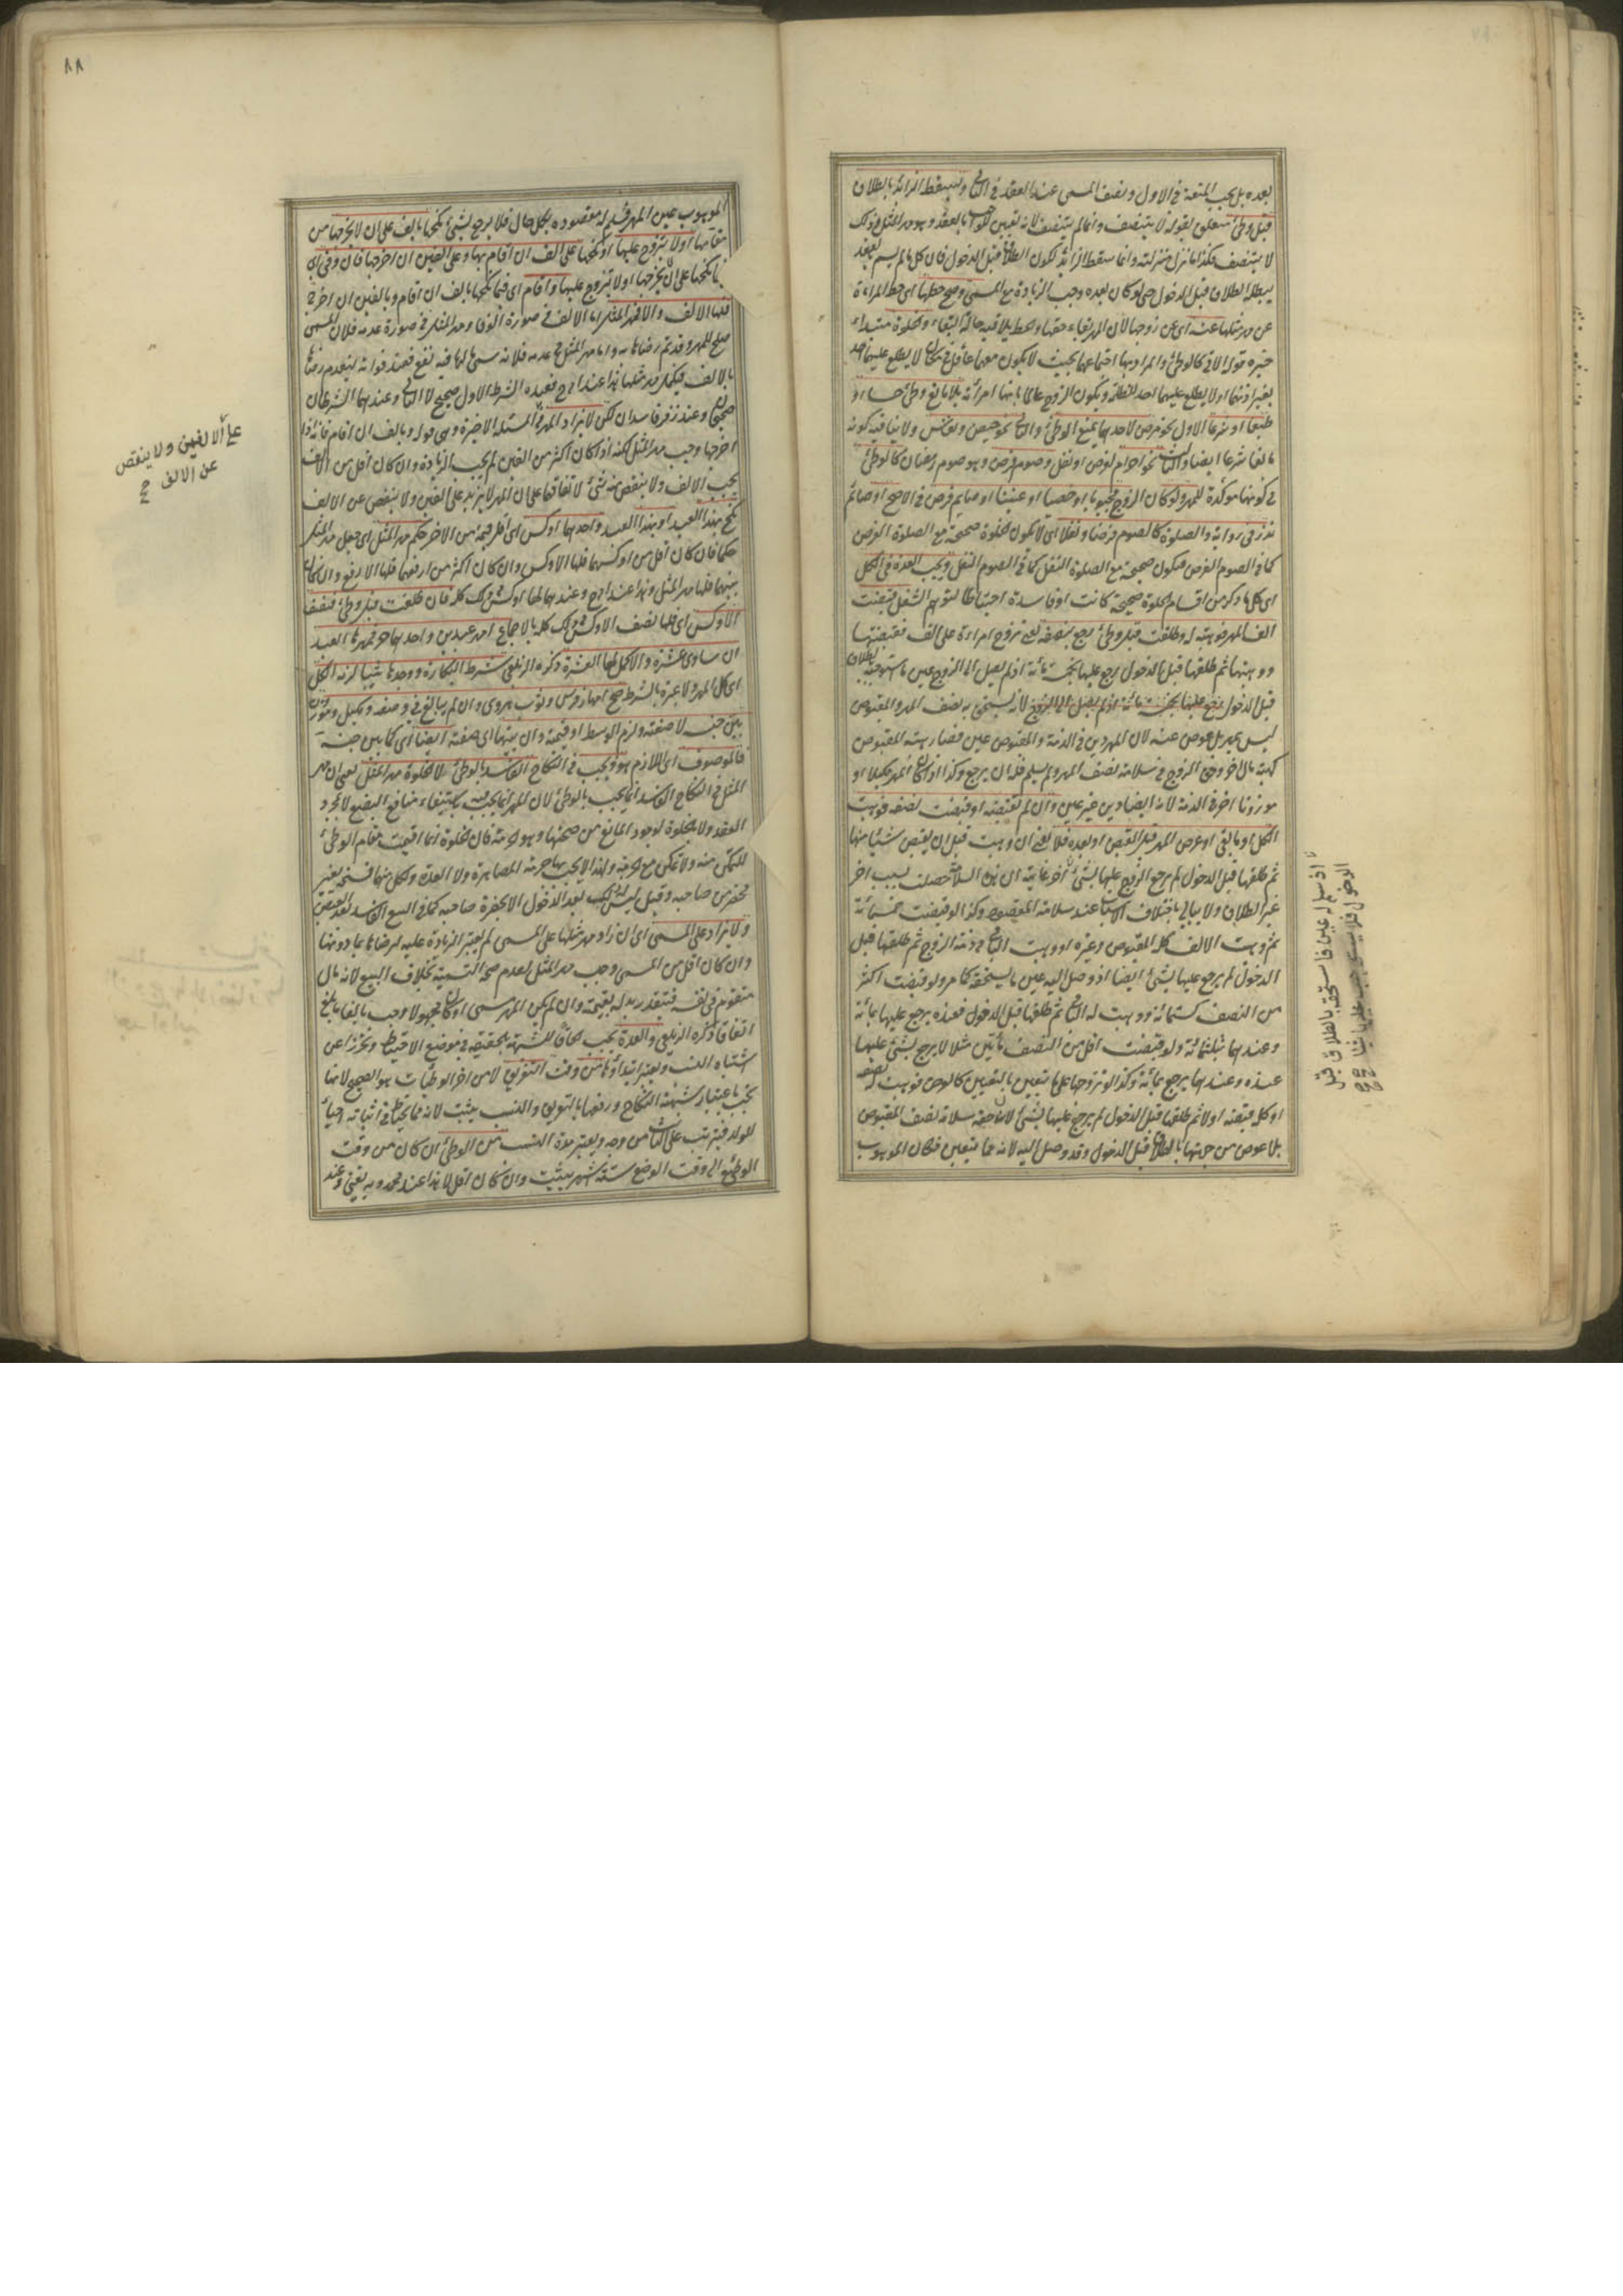 بعده بل يجب المتعة في الاول ونصف المسمى عند العقد في الثاني ويسقط الزائد بالطلاق
قبل وطئ متعلق بقوله لا يتنصف وانما لم يتنصف لانه تعيين للواجب بالعقد وهو مهر المثل وذلك
لا يتنصف فكذا ما نزل منزلته وانما سقط الزائد لكون الطلاق قبل الدخول فان كل ما لم يسم بعقد
يبطله الطلاق قبل الدخول حتى لو كان بعده وجب الزيادة مع المسمى وصح حطها اى حط المراءة
عن مهرها عنه اى عن زوجها لان المهر بقاء حقها والحط يلاقيه حالة البقاء والخلوة مبتداء
خبره قوله الاتى كالوطئ والمراد بها اجتماعهما بحيث لا يكون معهما عاقل في مكان لا يطلع عليهما احد
بغير اذنهما او لا يطلع عليهما احد للظلمة ويكون الزوج عالما بانها امرأته بلا مانع وطئ حسا او
طبعا او شرعا الاول نحو مرض لاحدهما يمنع الوطئ والثاني نحو حيض ونفاس ولا ينافيه كونه
مانعا شرعا ايضا والثالث نحو احرام لفرض او نفل وصوم فرض وهو صوم رمضان كالوطئ
في كونها مؤكدة للمهر ولو كان الزوج مجبوبا او خصيا او عنينا او صايم فرض في الاصح او صائم
نذر في رواية والصلوة كالصوم فرضا ونفلا اى لا يكون الخلوة صحيحة مع الصلوة الفرض
كما في الصوم الفرض فيكون صحيحة مع الصلوة النفل كما في الصوم النفل ويجب العدة في الكل
اى كل ما ذكر من اقسام الخلوة صحيحة كانت او فاسدة احتياطا لتوهم الشغل قبضت
الف المهر فوهبته له وطلقت قبل وطئ رجع بنصفه يعنى تزوج امراءة على الف فقبضتها
ووهبتها ثم طلقها قبل الدخول رجع عليها بخمسمائة اذ لم يصل الى الزوج عين ما استوجبه بالطلاق
قبل الدخول لانه يستحق به نصف المهر والمقبوض
ليس بمهر بل عوض عنه لان المهر دين في الذمة والمقبوض عين فصار هبة المقبوض
كهبة مال اخر وحق الزوج في سلامة نصف المهر ولم يسلم فله ان يرجع وكذا اذا كان المهر مكيلا او
موزونا اخر في الذمة لانه ايضا دين غير عين وان لم تقبضه او قبضت نصفه فوهبت
الكل او ما بقى او عرض المهر قبل القبض او بعده فلا يعنى ان وهبت قبل ان يقبض شيئا منها
ثم طلقها قبل الدخول لم يرجع الزوج عليها بشئ اخر غايته ان هذه السلامة حصلت بسبب اخر
غير الطلاق ولا يبالى باختلاف الاسباب عند سلامة المقصود وكذا لو قبضت خمسمائة
ثم وهبت الالف كله المقبوض وغيره او وهبت الباقى في ذمة الزوج ثم طلقها قبل
الدخول لم يرجع عليها بشئ ايضا اذ وصل اليه عين ما يستحقه كما مر ولو قبضت اكثر
من النصف كستمائة ووهبت له الباقى ثم طلقها قبل الدخول فعنده يرجع عليها بمائة
وعندهما بثلثمائة ولو قبضت اقل من النصف مأتين مثلا لا يرجع بشئ عليها
عنده وعندهما يرجع بمائة وكذا لو تزوجها على ما يتعين بالتعيين كالعرض فوهبت له نصفه
او كله قبضته اولا ثم طلقها قبل الدخول لم يرجع عليها بشئ لان حقه سلامة نصف المقبوض
بلا عوض من جهتها بالطلاق قبل الدخول وقد وصل اليه لانه مما يتعين فكان الموهوب
اذ سلم له عين ما استحقه بالطلاق قبل
الدخول فلا يستوجب عليها شيئا صح
٨٨
الموهوب عين المهر فسلم له مقصوده بكل حال فلا يرجع بشئ نكحها بالف على ان لا يخرجها من
مقامها او لا يتزوج عليها او نكحها على الف ان اقام بها وعلى الفين ان اخرجها فان وفى اى
نكحها على ان لا يخرجها او لا يتزوج عليها واقام اى فيما نكحها بالف ان اقام وبالفين ان اخرج
فلها الالف والا فمهر المثل اما الالف في صورة الوفاء ومهر المثل في صورة عدمه فلان المسمى
صلح للمهر وقد تم رضاها به واما مهر المثل في عدمه فلانه سمى لها ما فيه نفع فعند فواته ينعدم رضاها
بالالف فيكمل مهر مثلها هذا عند ابى ح فعنده الشرط الاول صحيح لا الثاني وعندهما الشرطان
صحيحان وعند زفر فاسدان لكن لا يزاد المهر في المسئلة الاخيرة وهى قوله وبالف ان اقام فانه اذا
اخرجها وجب مهر المثل لكنه اذا كان اكثر من الفين لم يجب الزيادة وان كان اقل من الالف
يجب الالف ولا ينقص منه شئ لاتفاقهما على ان المهر لا يزيد على الفين ولا ينقص عن الالف
نكح بهذا العبد او بهذا العبد واحدهما اوكس اى اقل قيمة من الاخر حكم مهر المثل اى جعل مهر المثل
حكما فان كان اقل من اوكسهما فلها الاوكس وان كان اكثر من ارفعهما فلها الارفع وان كان
بينهما فلها مهر المثل وهذا عند ابى ح وعندهما لها الاوكس في ذلك كله فان طلقت قبل وطئ فنصف
الاوكس اى فلها نصف الاوكس في ذلك كله بالاجماع امهر عبدين واحدهما حر فمهرها العبد
ان ساوى عشرة والا كمل لها العشرة ذكره الزيلعى شرط البكارة ووجدها ثيبا لزمه الكل
اى كل المهر ولا عبرة بالشرط صح امهار فرس وثوب هروى وان لم يبالغ في وصفه ومكيل وموزون
بين جنسه لا صفته ولزم الوسط او قيمته وان بينهما اى صفته ايضا اى كما بين جنسه
فالموصوف اى اللازم هو ويجب في النكاح الفاسد بالوطئ لا الخلوة مهر المثل يعنى ان مهر
المثل في النكاح الفاسد انما يجب بالوطئ لان المهر انما يجب باستيفاء منافع البضع لا بمجرد
العقد ولا بالخلوة لوجود المانع من صحتها وهو الحرمة فان الخلوة انما اقيمت مقام الوطئ
للتمكن منه ولا تمكن مع الحرمة ولهذا لا يجب بها حرمة المصاهرة ولا العدة ولكل منهما فسخه بغير
محضر من صاحبه وقيل ليس له ذلك بعد الدخول الا بحضرة صاحبه كما في البيع الفاسد بعد القبض
ولا يزاد على المسمى اى ان زاد مهر مثلها على المسمى لم يعتبر الزيادة عليه لرضاها بما دونها
وان كان اقل من المسمى وجب مهر المثل لعدم صحة التسمية بخلاف البيع لانه مال
متقوم في نفسه فيتقدر بدله بقيمته وان لم يكن المهر مسمى او كان مجهولا وجب بالغا ما بلغ
اتفاقا ذكره الزيلعى والعدة يجب الحاقا للشبهة بالحقيقة في موضع الاحتياط وتحرزا عن
اشتباه النسب ويعتبر ابتداؤها من وقت التفريق لا من اخر الوطئات هو الصحيح لانها
تجب باعتبار شبهة النكاح ورفعها بالتفريق والنسب يثبت لانه مما يحتاط في اثباته احياء
للولد فيترتب على الثابت من وجه ويعتبر مدة النسب من الوطئ ان كان من وقت
الوطئ الى وقت الوضع ستة اشهر يثبت وان كان اقل لا هذا عند محمد وبه يفتى وعند
على الالفين ولا ينقص
عن الالف صح